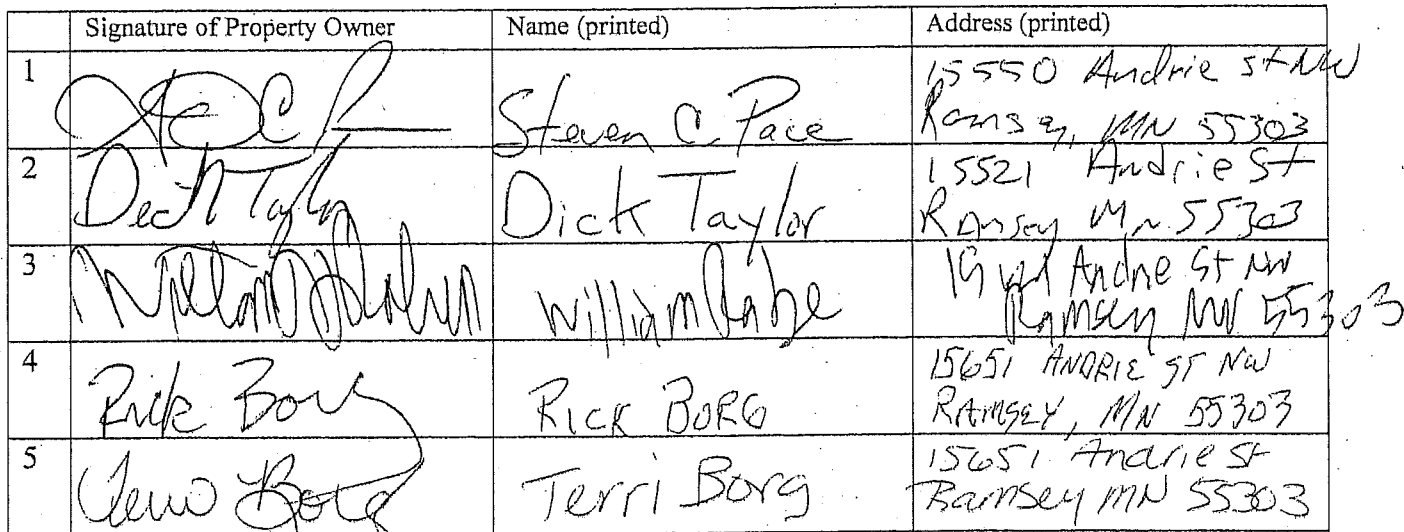 Signature of Property Owner Name (printed) Address (printed)
1 Steven C. Pace 15550 Andrie St NW
Ramsey, MN 55303
2 Dick Taylor Dick Taylor 15521 Andrie St
Ramsey Mn 55303
3 William Andrie St NW
Ramsey MN 55303
4 Rick Borg RICK BORG 15651 ANDRIE ST NW
RAMSEY, MN 55303
5 Terri Borg Terri Borg 15651 Andrie St
Ramsey MN 55303